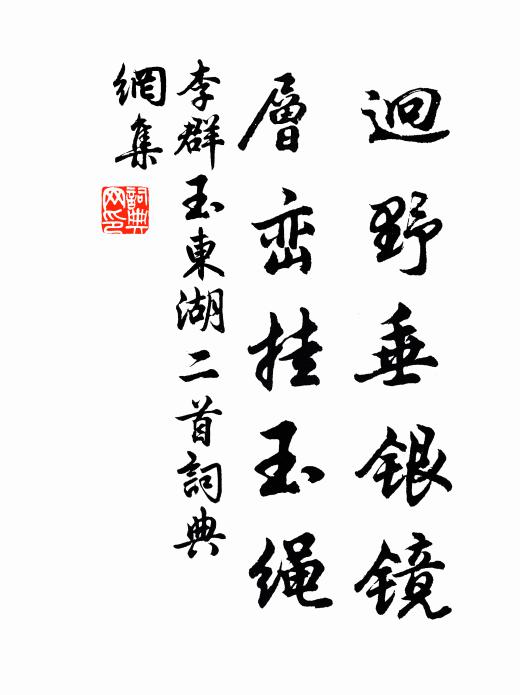 迥野垂银镜
層峦挂玉绳
李群玉東湖二首詞典
網集
詞典
网印